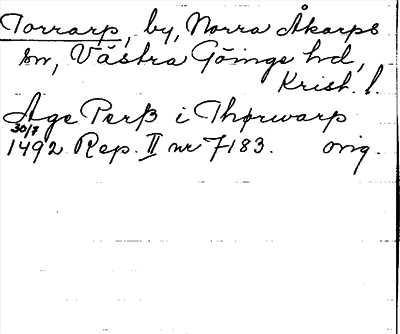 Torrarp, by, Norra Åkarps
sn, Västra Göinge hd,
Krist. l.
Åge Perß i Thørwarp
30/7
1492 Rep. II nr 7183. orig.